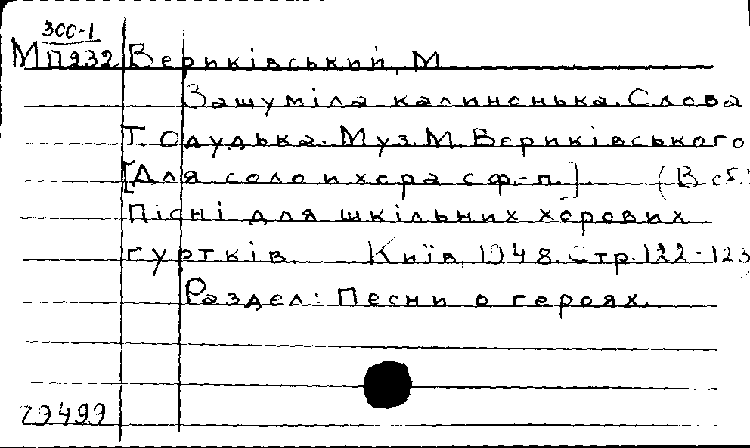 300-1
М П932 Вериківський, М.
Зашуміла калинонька. Слова
Т. Одудька. Муз. М. Вериківського
[Для соло и хора с ф.-п.] (В сб.:
Пісні для шкільних хорових
гуртків. Київ, 1948. Стр. 122-123
Раздел: Песни о героях.
29499